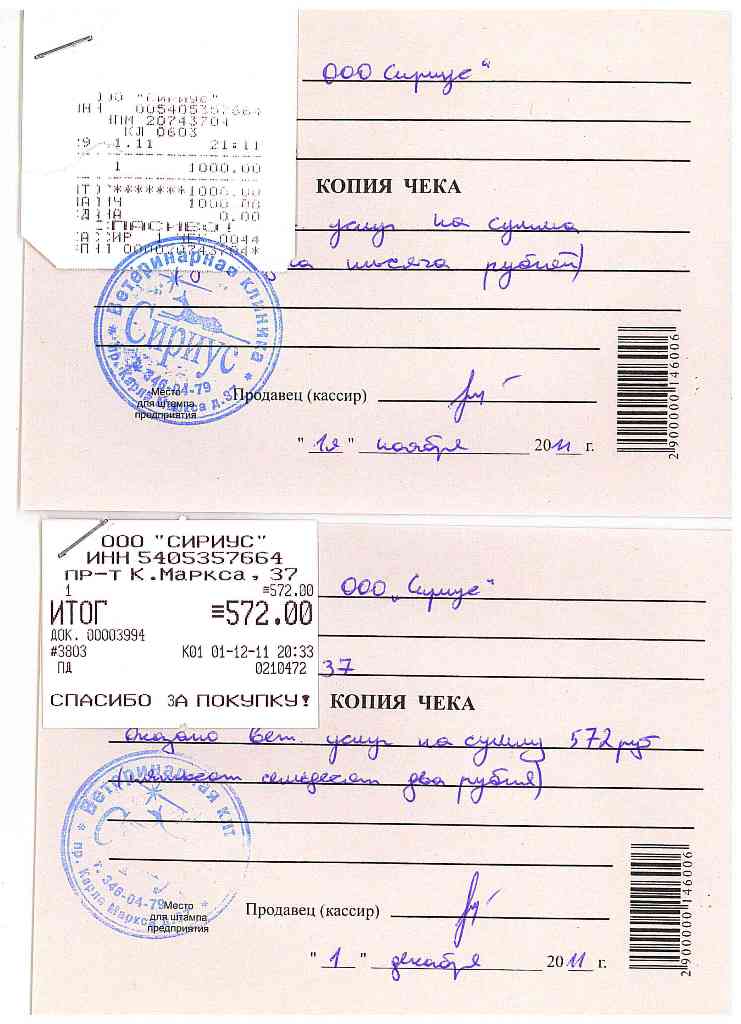 ООО Сириус"
ООО "СИРИУС"
005405357664
20743704
КЛ 0603
1.11 21:11
1 1000.00
*******1000.00
1000.00
0.00
СПАСИБО!
КОПИЯ ЧЕКА
услуг на сумма
тысяча рублей)
Ветеринарная клиника
Сириус
т. 346-04-79
пр. Карла Маркса д.37
Место
для штампа
предприятия
Продавец (кассир)
" ноября 2011 г.
2900000146006
ООО "СИРИУС"
ИНН 5405357664
пр-т К.Маркса, 37
1 ≡572.00
ИТОГ ≡572.00
ДОК. 00003994
#3803 К01 01-12-11 20:33
ПД 0210472
СПАСИБО ЗА ПОКУПКУ!
ООО „Сириус"
37
КОПИЯ ЧЕКА
Оказано вет. услуг на сумму 572 руб
(пятьсот семьдесят два рубля)
Ветеринарная кли
т. 346-04-79
пр. Карла Маркса д.
Место
для штампа
предприятия
Продавец (кассир)
" 1 " декабря 2011 г.
2900000146006